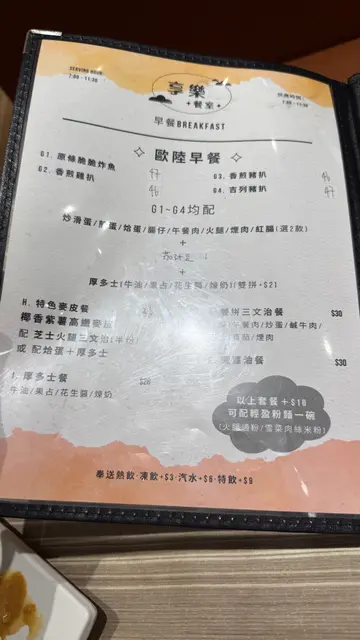 SERVING HOUR:
7:00 - 11:30
享樂
餐室
供應時間:
7:00 - 11:30
早餐BREAKFAST
歐陸早餐
G1. 原條脆脆炸魚 47
G2. 香煎雞扒 46
G3. 香煎豬扒 46
G4. 吉列豬扒 47
G1~G4均配
炒滑蛋/煎蛋/烚蛋/腸仔/午餐肉/火腿/煙肉/紅腸(選2款)
+
+
厚多士(牛油/果占/花生醬/煉奶)(雙拼+$21)
H. 特色麥皮餐
椰香紫薯高纖麥皮
配 芝士火腿三文治(半份)
或 配烚蛋+厚多士
拼三文治餐 $30
午餐肉/炒蛋/鹹牛肉/
煙肉
油餐 $30
厚多士餐 $26
牛油/果占/花生醬/煉奶
以上套餐+$10
可配輕盈粉麵一碗
(火腿通粉/雪菜肉絲米粉)
奉送熱飲‧凍飲+$3‧汽水+$6‧特飲+$9